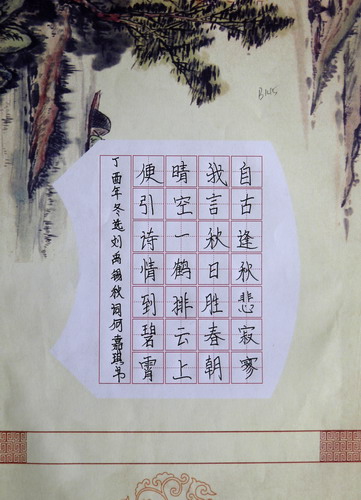 自古逢秋悲寂寥
我言秋日胜春朝
晴空一鹤排云上
便引诗情到碧霄
丁酉年冬选刘禹锡秋词何嘉琪书